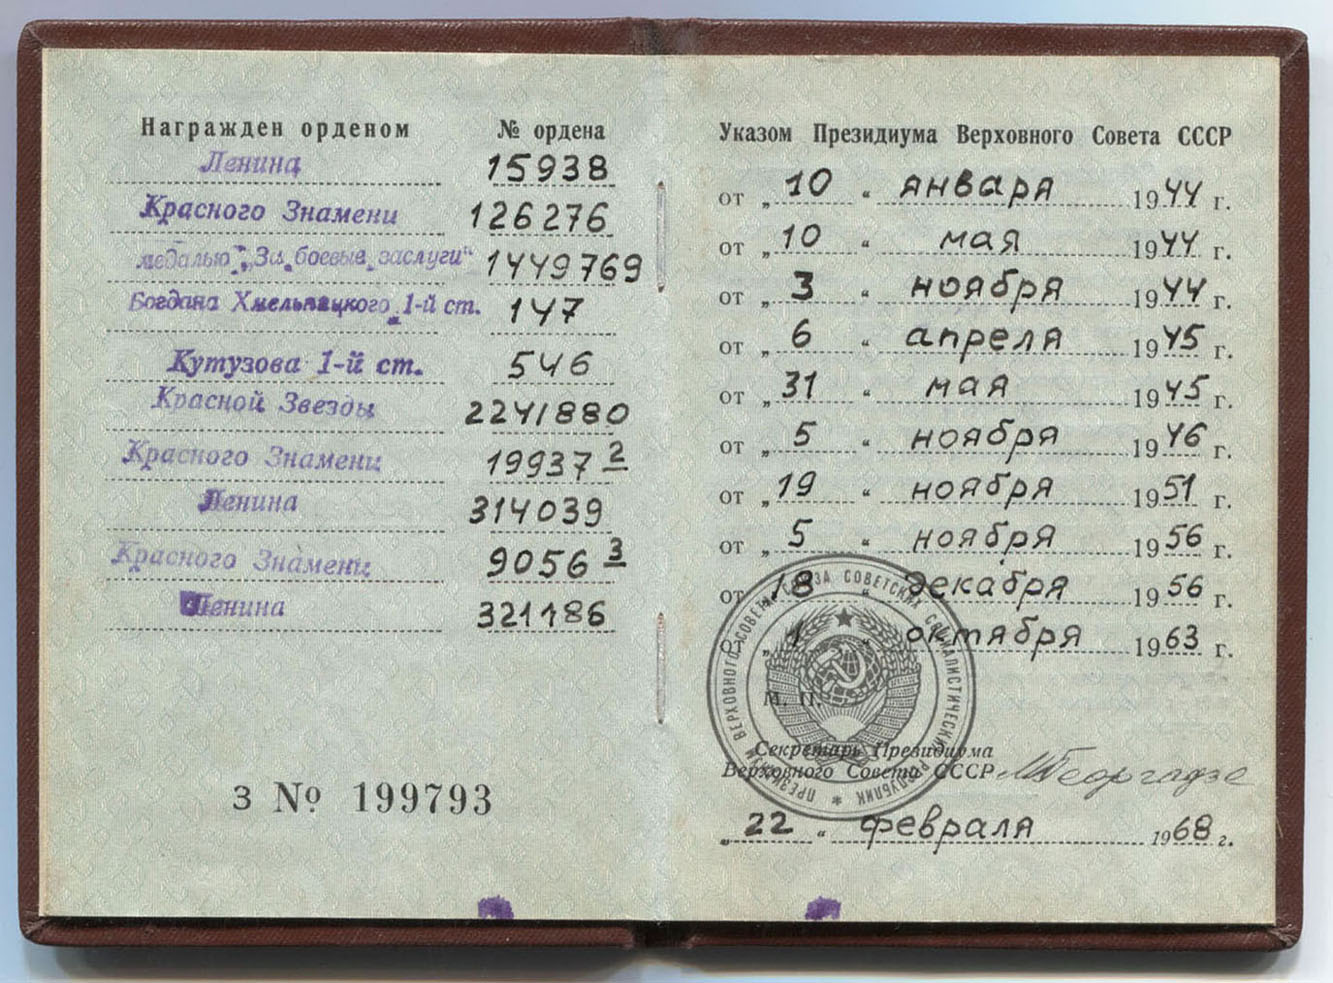 Награжден орденом № ордена
Ленина 15938
Красного Знамени 126276
медалью „За боевые заслуги“ 1449769
Богдана Хмельницкого 1-й ст. 147
Кутузова 1-й ст. 546
Красной Звезды 2241880
Красного Знамени 19937 2
Ленина 314039
Красного Знамени 9056 3
Ленина 321186
З № 199793
Указом Президиума Верховного Совета СССР
от „10“ января 1944 г.
от „10“ мая 1944 г.
от „3“ ноября 1944 г.
от „6“ апреля 1945 г.
от „31“ мая 1945 г.
от „5“ ноября 1946 г.
от „19“ ноября 1951 г.
от „5“ ноября 1956 г.
от „18“ декабря 1956 г.
от „1“ октября 1963 г.
М. П.
ПРЕЗИДИУМ ВЕРХОВНОГО СОВЕТА СОЮЗА СОВЕТСКИХ СОЦИАЛИСТИЧЕСКИХ РЕСПУБЛИК
Секретарь Президиума
Верховного Совета СССР МГеоргадзе
„22“ февраля 1968 г.